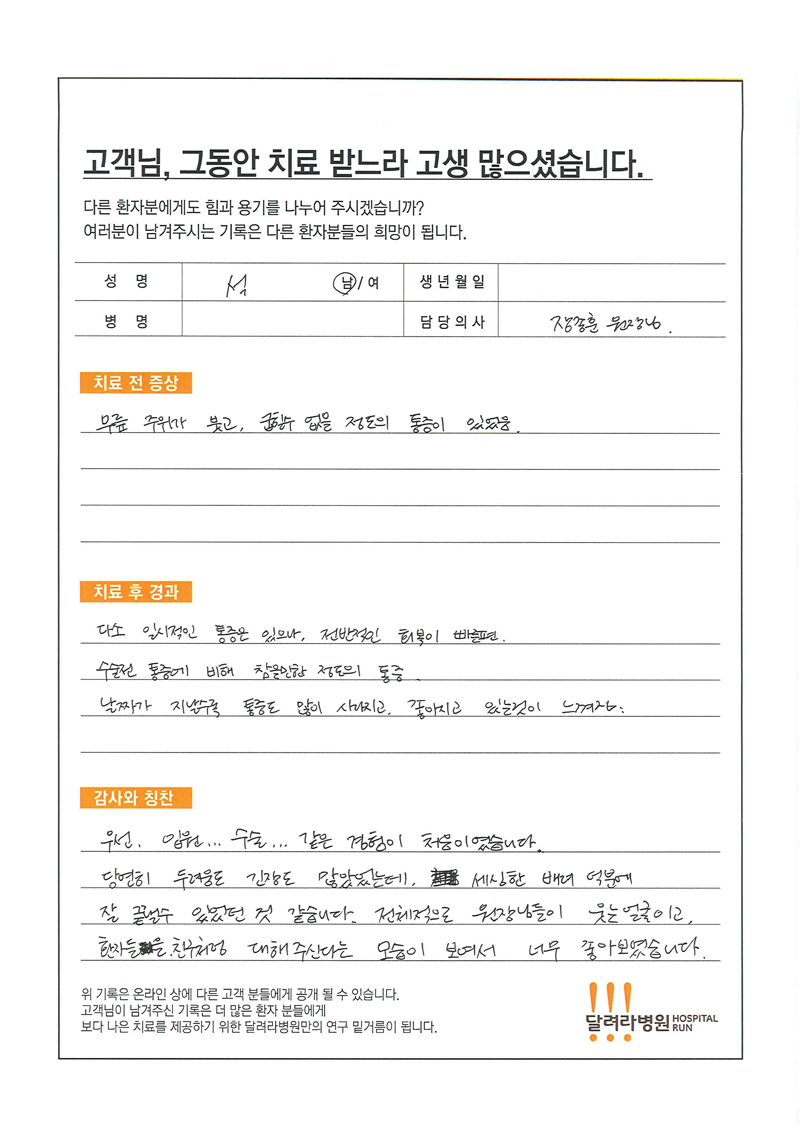 고객님, 그동안 치료 받느라 고생 많으셨습니다.
다른 환자분에게도 힘과 용기를 나누어 주시겠습니까?
여러분이 남겨주시는 기록은 다른 환자분들의 희망이 됩니다.
성 명 석 남/여 생년월일
병 명 담당의사 장종훈 원장님.
치료 전 증상
무릎 주위가 붓고, 굽힐수 없을 정도의 통증이 있었음.
치료 후 경과
다소 일시적인 통증은 있으나, 전반적인 회복이 빠른편.
수술전 통증에 비해 참을만한 정도의 통증.
날짜가 지날수록 통증도 많이 사라지고, 좋아지고 있는것이 느껴짐.
감사와 칭찬
우선. 입원... 수술... 같은 경험이 처음이였습니다.
당연히 두려움도 긴장도 많았었는데, 세심한 배려 덕분에
잘 끝낼수 있었던 것 같습니다. 전체적으로 원장님들이 웃는얼굴이고,
환자들을 친구처럼 대해주신다는 모습이 보여서 너무 좋아보였습니다.
위 기록은 온라인 상에 다른 고객 분들에게 공개 될 수 있습니다.
고객님이 남겨주신 기록은 더 많은 환자 분들에게
보다 나은 치료를 제공하기 위한 달려라병원만의 연구 밑거름이 됩니다.
달려라병원 HOSPITAL RUN